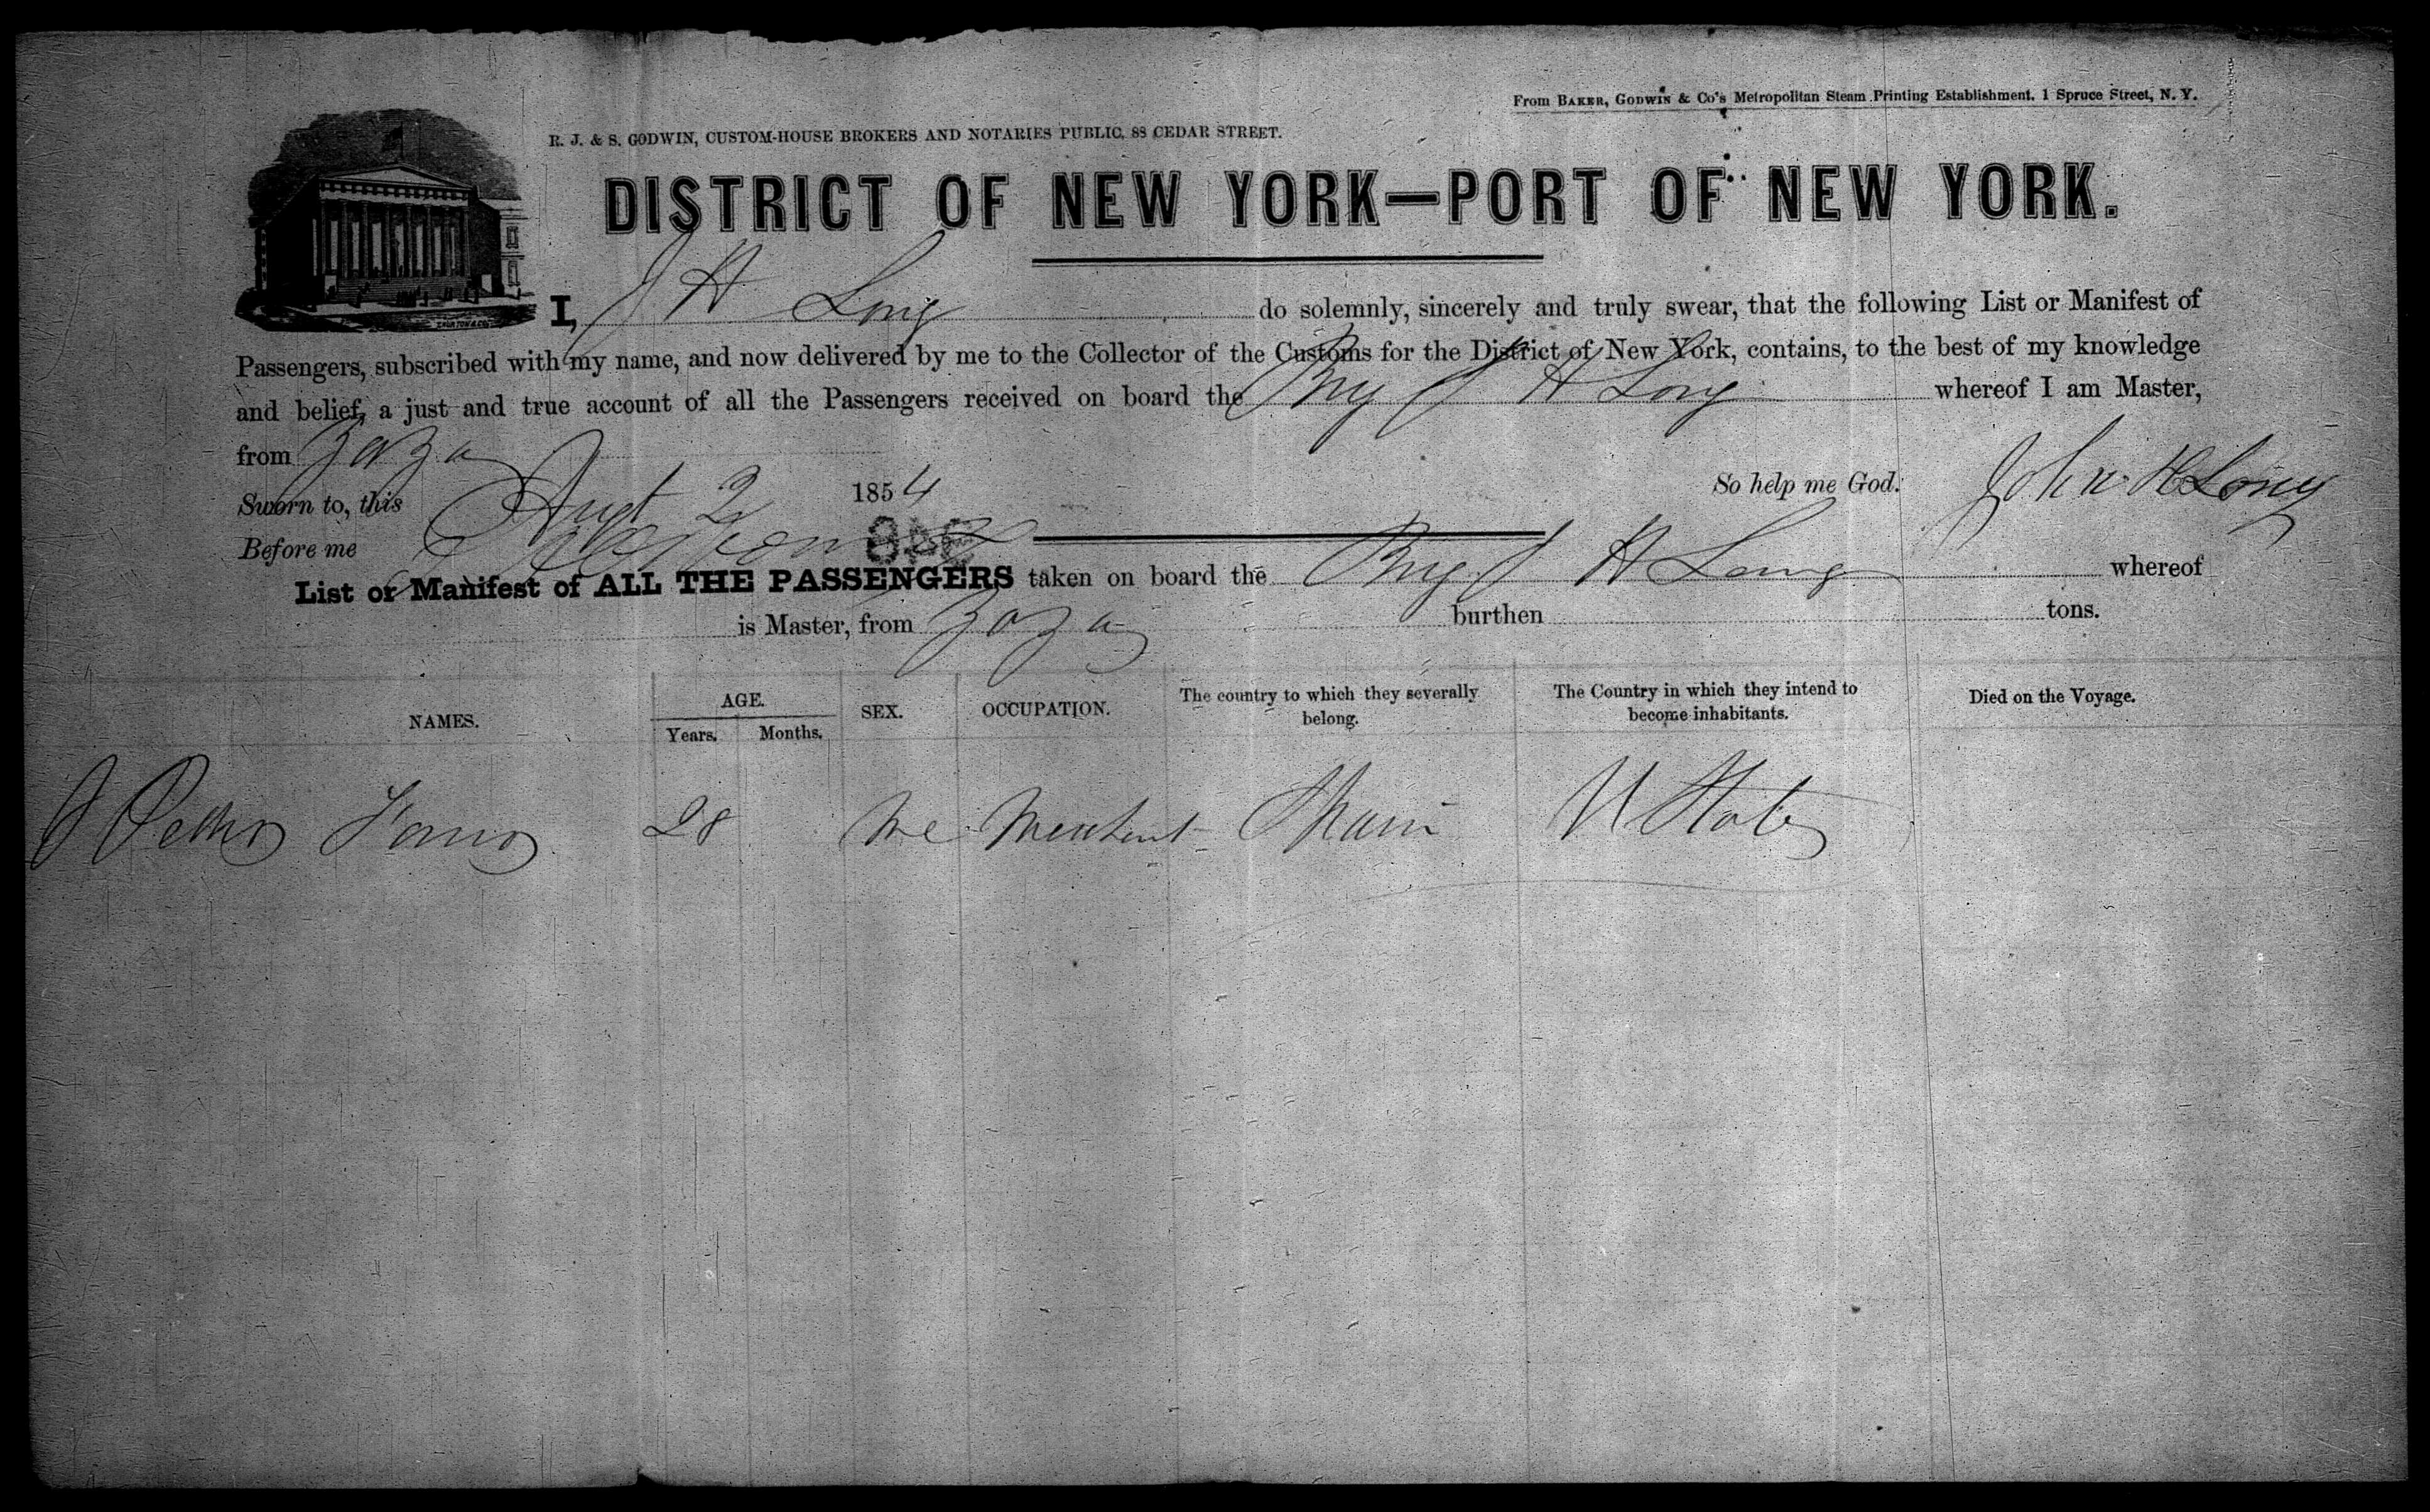 From BAKER, GODWIN & Co's Metropolitan Steam Printing Establishment, 1 Spruce Street, N. Y.
R. J. & S. GODWIN, CUSTOM-HOUSE BROKERS AND NOTARIES PUBLIC, 88 CEDAR STREET.
DISTRICT OF NEW YORK—PORT OF NEW YORK.
I, J H Long do solemnly, sincerely and truly swear, that the following List or Manifest of
Passengers, subscribed with my name, and now delivered by me to the Collector of the Customs for the District of New York, contains, to the best of my knowledge
and belief, a just and true account of all the Passengers received on board the Brig J H Long whereof I am Master,
from Zaza
Sworn to, this Augt 2 1854 So help me God. John H Long
Before me
List or Manifest of ALL THE PASSENGERS taken on board the Brig J H Long whereof
is Master, from Zaza burthen tons.
NAMES. AGE. Years. Months. SEX. OCCUPATION. The country to which they severally belong. The Country in which they intend to become inhabitants. Died on the Voyage.
J Pedro 28 Me Merchant Spain U States